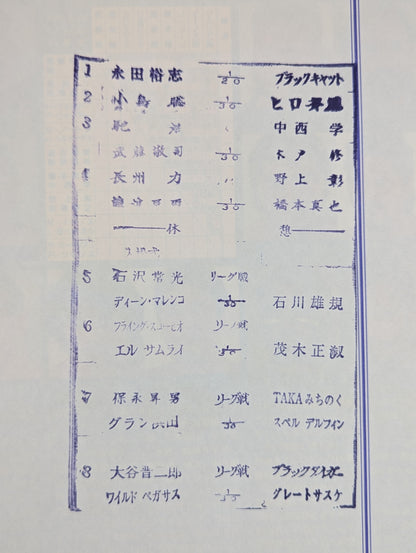 1 永田裕志 1/20 ブラックキャット
2 小島 聡 1/30 ヒロ
3 馳 浩 中西 学
武藤敬司 1/30 木戸 修
4 長州 力 〃 野上 彰
1/30 橋本真也
――休 憩――
5 石沢常光 リーグ戦
ディーン・マレンコ 1/30 石川雄規
6 リーグ戦
エル サムライ 1/30 茂木正淑
7 保永昇男 リーグ戦 TAKAみちのく
グラン浜田 1/30 スペル デルフィン
8 大谷晋二郎 リーグ戦 ブラックタイガー
ワイルド ペガサス 1/30 グレートサスケ